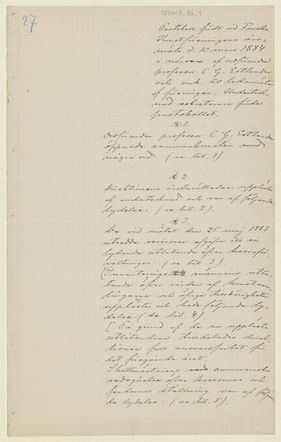 27
Protokoll fördt vid Finska
Konstföreningens års-
möte d. 10 mars 1884
i närvaro af ordföranden
professor C. G. Estlander
och omk. 20 ledamöter
af föreningen. Undertek-
nad sekreterare förde
protokollet.
§ 1.
Ordföranden professor C. G. Estlander
öppnade sammankomsten med
några ord (se bil. 1)
§ 2.
Direktionens årsberättelse upplästes
af undertecknad och var af följande
lydelse: (se bil. 2).
§ 3.
De vid mötet den 25 maj 1883
utsedde revisorer afgifvo ett så
lydande utlåtande öfver kassaför-
valtningen: (se bil. 3).
Inventerings männens utlå-
tande öfver värden af konstsam-
lingarna och öfriga tillhörigheter
upplästes och hade följande ly-
delse: (se bil. 4)
[På grund af de nu upplästa
utlåtandena tilldelades direk-
tionen full ansvarsfrihet för
det förgångna året.
Skattmästarens summariska
redogörelse öfver kassornas och
fondernas ställning var af följan-
de lydelse: (se bil. 5).